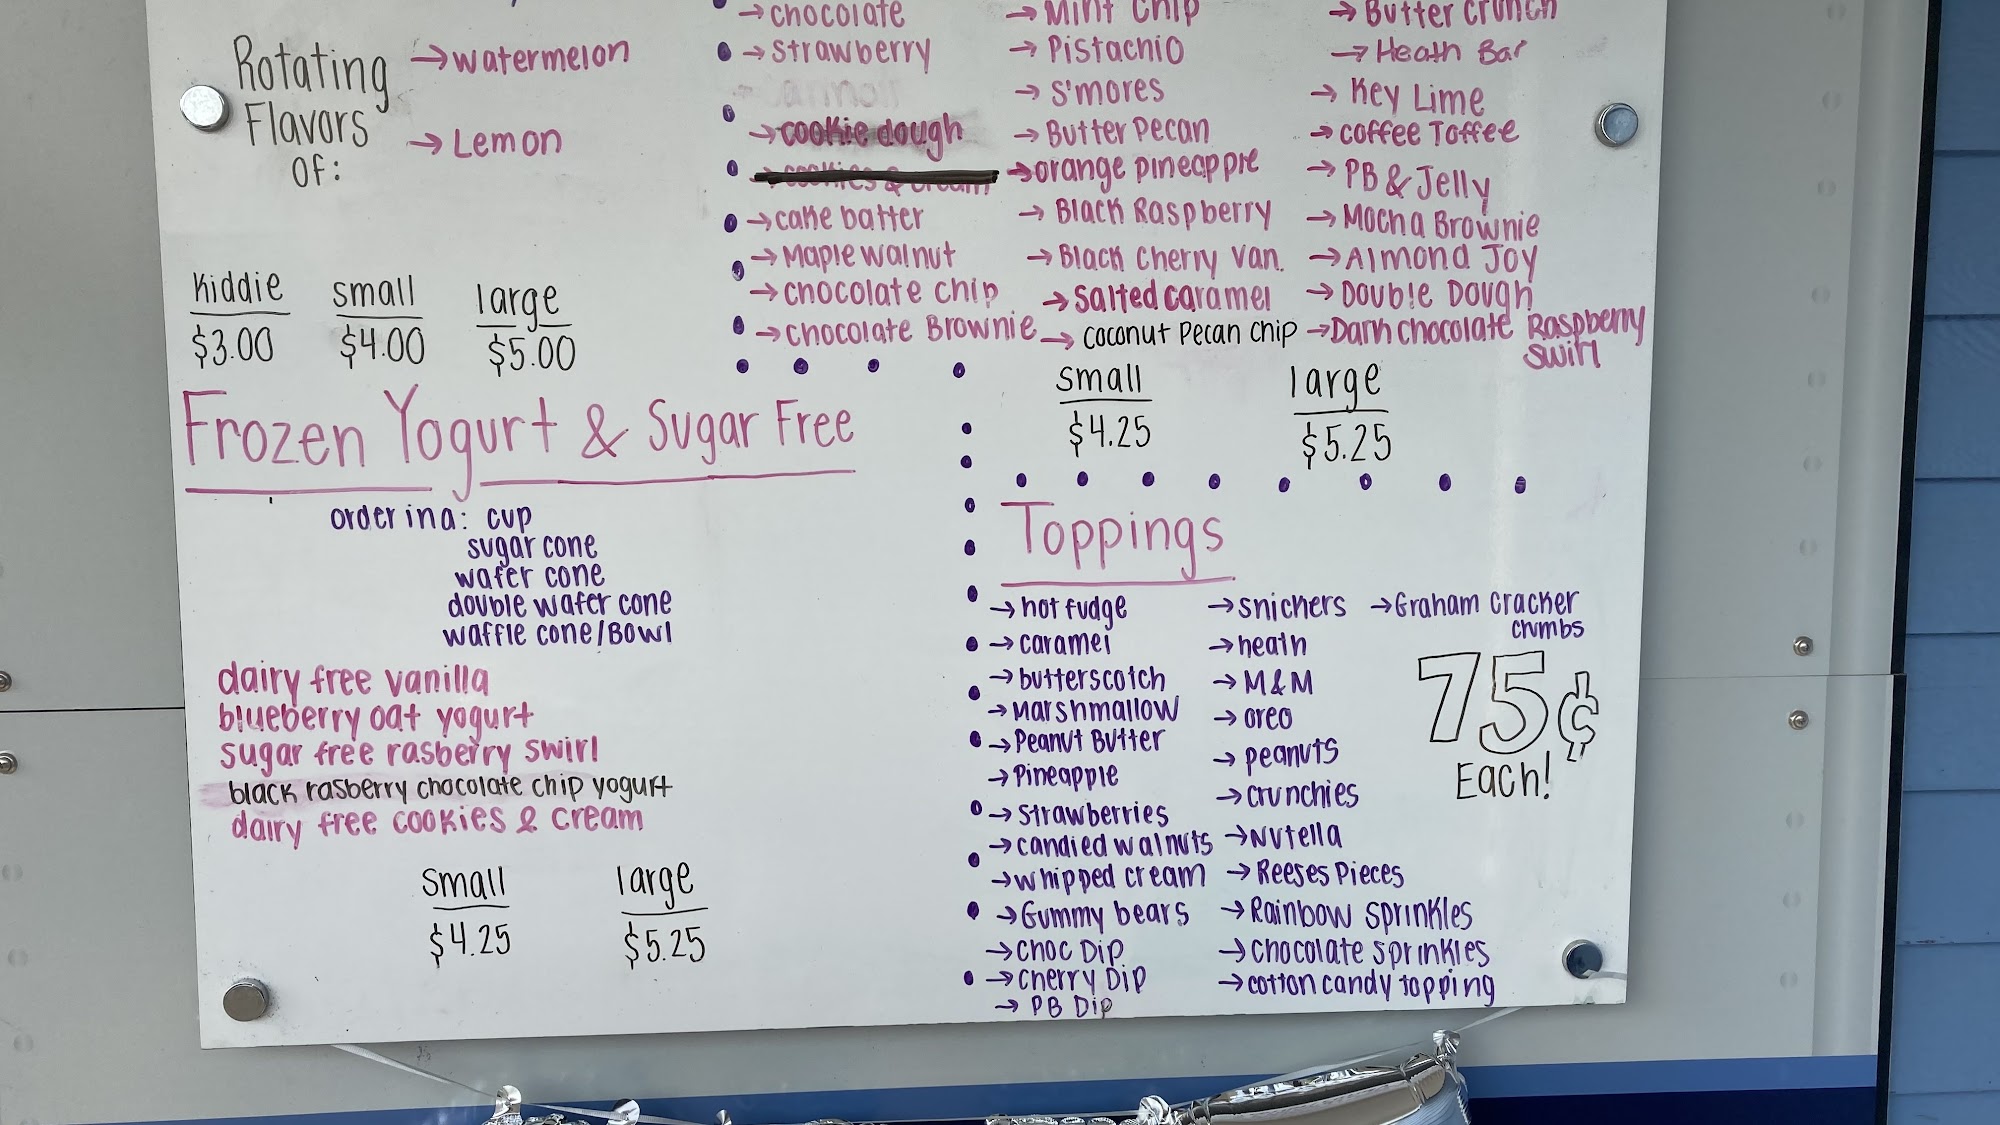 Rotating
Flavors
OF:
→watermelon
→Lemon
Kiddie small large
$3.00 $4.00 $5.00
→chocolate
→strawberry
→cookie dough
→cookies & cream
→cake batter
→Maple walnut
→chocolate chip
→chocolate Brownie
→Mint Chip
→Pistachio
→S'mores
→Butter Pecan
→orange pineapple
→Black Raspberry
→Black Cherry Van.
→Salted caramel
→coconut Pecan Chip
→Butter Crunch
→Heath Bar
→Key Lime
→coffee Toffee
→PB & Jelly
→Mocha Brownie
→Almond Joy
→Double Dough
→Dark chocolate Raspberry
Swirl
small large
$4.25 $5.25
Frozen Yogurt & Sugar Free
order in a: cup
sugar cone
wafer cone
double wafer cone
waffle cone/Bowl
dairy free vanilla
blueberry oat yogurt
sugar free rasberry swirl
black rasberry chocolate chip yogurt
dairy free cookies & cream
small large
$4.25 $5.25
Toppings
→hot fudge
→caramel
→butterscotch
→Marshmallow
→Peanut Butter
→Pineapple
→Strawberries
→candied walnuts
→whipped cream
→Gummy bears
→Choc Dip
→Cherry Dip
→PB Dip
→snickers
→heath
→M&M
→oreo
→peanuts
→crunchies
→Nutella
→Reeses Pieces
→Rainbow sprinkles
→chocolate sprinkles
→cotton candy topping
→Graham cracker
crumbs
75¢
Each!